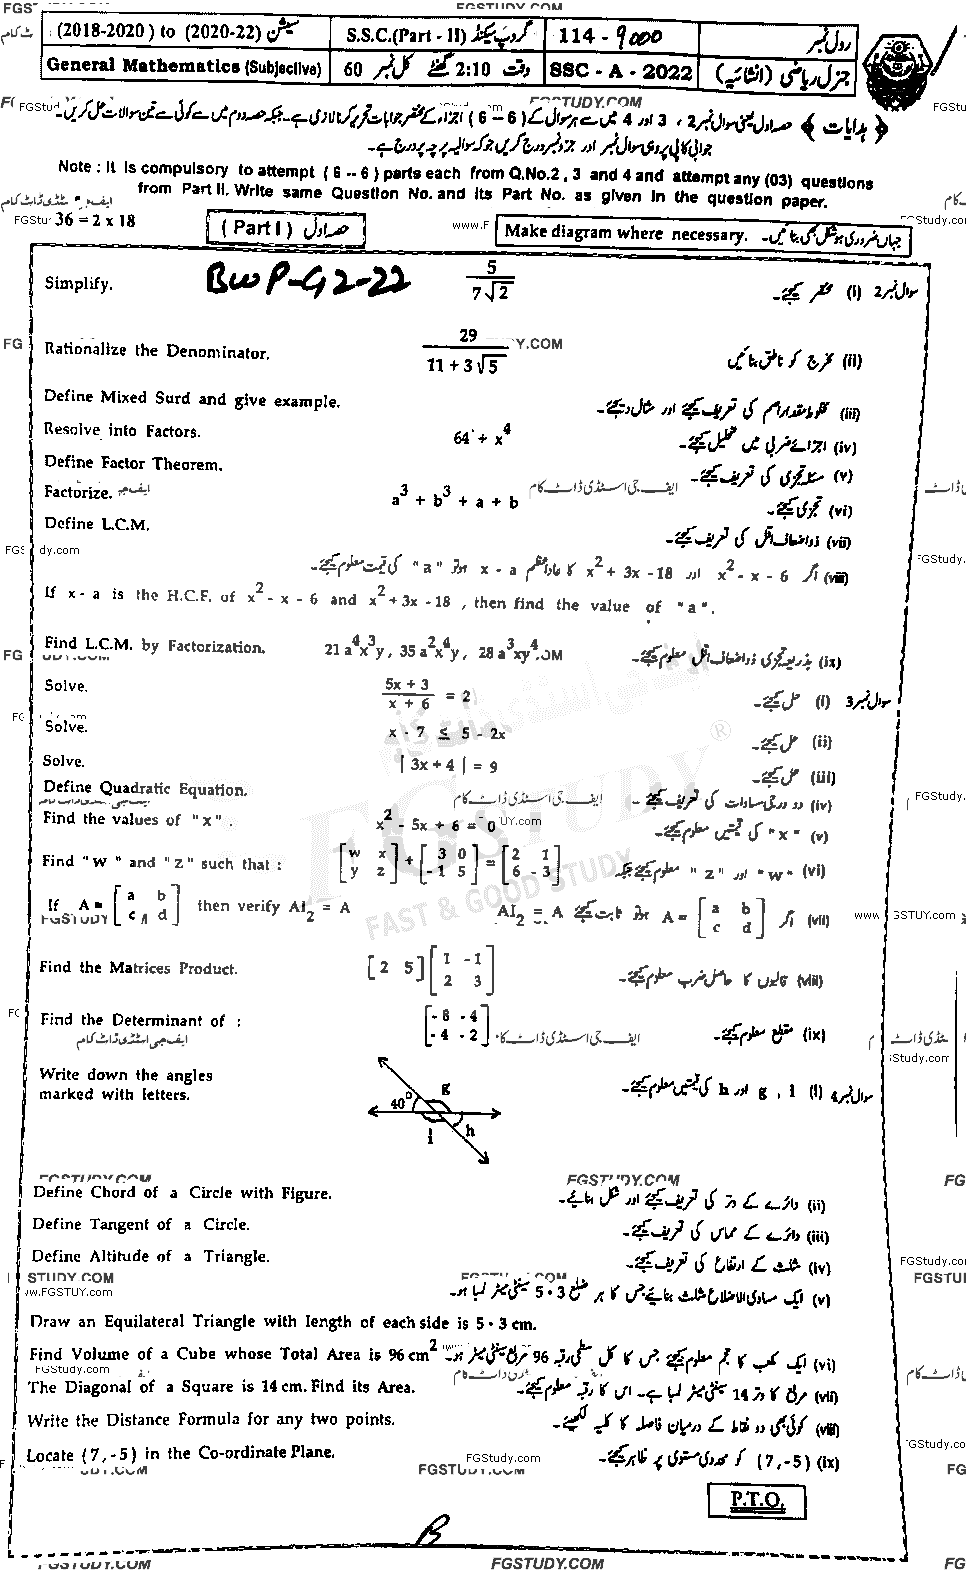 FGSTUDY.COM
(2018-2020) to (2020-22) سیشن S.S.C.(Part - II) گروپ سیکنڈ 114 - 9000 رول نمبر
General Mathematics (Subjective) کل نمبر 60 وقت 2:10 گھنٹے SSC - A - 2022 جنرل ریاضی (انشائیہ)
FGSTUDY.COM
﴿ ہدایات ﴾ حصہ اول یعنی سوال نمبر 2 ، 3 اور 4 میں سے ہر سوال کے (6 – 6) اجزاء کے مختصر جوابات تحریر کرنا لازمی ہے۔ جبکہ حصہ دوم میں سے کوئی سے تین سوالات حل کریں۔
جوابی کاپی پر وہی سوال نمبر اور جزو نمبر درج کریں جو کہ سوالیہ پرچہ پر درج ہے۔
Note : It is compulsory to attempt (6 -- 6) parts each from Q.No.2 , 3 and 4 and attempt any (03) questions
from Part II. Write same Question No. and its Part No. as given in the question paper.
36 = 2 x 18 (Part I) حصہ اول Make diagram where necessary. جہاں ضروری ہو شکل بھی بنائیں۔
Simplify. BWP-G2-22 5/7√2 سوال نمبر 2 (i) مختصر کیجئے۔
Rationalize the Denominator. 29/(11 + 3√5) (ii) مخرج کو ناطق بنائیں
Define Mixed Surd and give example. (iii) مخلوط مقدار اصم کی تعریف کیجئے اور مثال دیجئے۔
Resolve into Factors. 64 + x⁴ (iv) اجزائے ضربی میں تحلیل کیجئے۔
Define Factor Theorem. (v) مسئلہ تجزی کی تعریف کیجئے۔
Factorize. a³ + b³ + a + b (vi) تجزی کیجئے۔
Define L.C.M. (vii) ذواضعاف اقل کی تعریف کیجئے۔
(viii) اگر x² - x - 6 اور x² + 3x - 18 کا عاداعظم x - a ہو تو "a" کی قیمت معلوم کیجئے۔
If x - a is the H.C.F. of x² - x - 6 and x² + 3x - 18 , then find the value of "a".
Find L.C.M. by Factorization. 21a⁴x³y , 35a²x⁴y , 28a³xy⁴ (ix) بذریعہ تجزی ذواضعاف اقل معلوم کیجئے۔
Solve. (5x + 3)/(x + 6) = 2 سوال نمبر 3 (i) حل کیجئے۔
Solve. x - 7 ≤ 5 - 2x (ii) حل کیجئے۔
Solve. | 3x + 4 | = 9 (iii) حل کیجئے۔
Define Quadratic Equation. (iv) دو درجی مساوات کی تعریف کیجئے۔
Find the values of "x". x² - 5x + 6 = 0 (v) "x" کی قیمتیں معلوم کیجئے۔
Find "w" and "z" such that : [w x; y z] + [3 0; -1 5] = [2 1; 6 -3] (vi) "w" اور "z" معلوم کیجئے جبکہ
If A = [a b; c d] then verify AI₂ = A (vii) اگر A = [a b; c d] ہو تو ثابت کیجئے AI₂ = A
Find the Matrices Product. [2 5] [1 -1; 2 3] (viii) قالبوں کا حاصل ضرب معلوم کیجئے۔
Find the Determinant of : [-8 -4; -4 -2] (ix) مقطع معلوم کیجئے۔
Write down the angles سوال نمبر 4 (i) i , g اور h کی قیمتیں معلوم کیجئے۔
marked with letters.
g
40°
i h
FGSTUDY.COM
Define Chord of a Circle with Figure. (ii) دائرے کے وتر کی تعریف کیجئے اور شکل بنائیے۔
Define Tangent of a Circle. (iii) دائرے کے مماس کی تعریف کیجئے۔
Define Altitude of a Triangle. (iv) مثلث کے ارتفاع کی تعریف کیجئے۔
(v) ایک مساوی الاضلاع مثلث بنائیے جس کا ہر ضلع 5.3 سینٹی میٹر لمبا ہو۔
Draw an Equilateral Triangle with length of each side is 5.3 cm.
Find Volume of a Cube whose Total Area is 96 cm² (vi) ایک مکعب کا حجم معلوم کیجئے جس کا کل سطحی رقبہ 96 مربع سینٹی میٹر ہو۔
The Diagonal of a Square is 14 cm. Find its Area. (vii) مربع کا وتر 14 سینٹی میٹر لمبا ہے۔ اس کا رقبہ معلوم کیجئے۔
Write the Distance Formula for any two points. (viii) کوئی بھی دو نقاط کے درمیان فاصلہ کا کلیہ لکھیئے۔
Locate (7, -5) in the Co-ordinate Plane. (ix) (7, -5) کو محددی مستوی پر ظاہر کیجئے۔
FGSTUDY.COM
P.T.O.
B
FGSTUDY.COM FGSTUDY.COM
FGSTUDY
FAST & GOOD STUDY